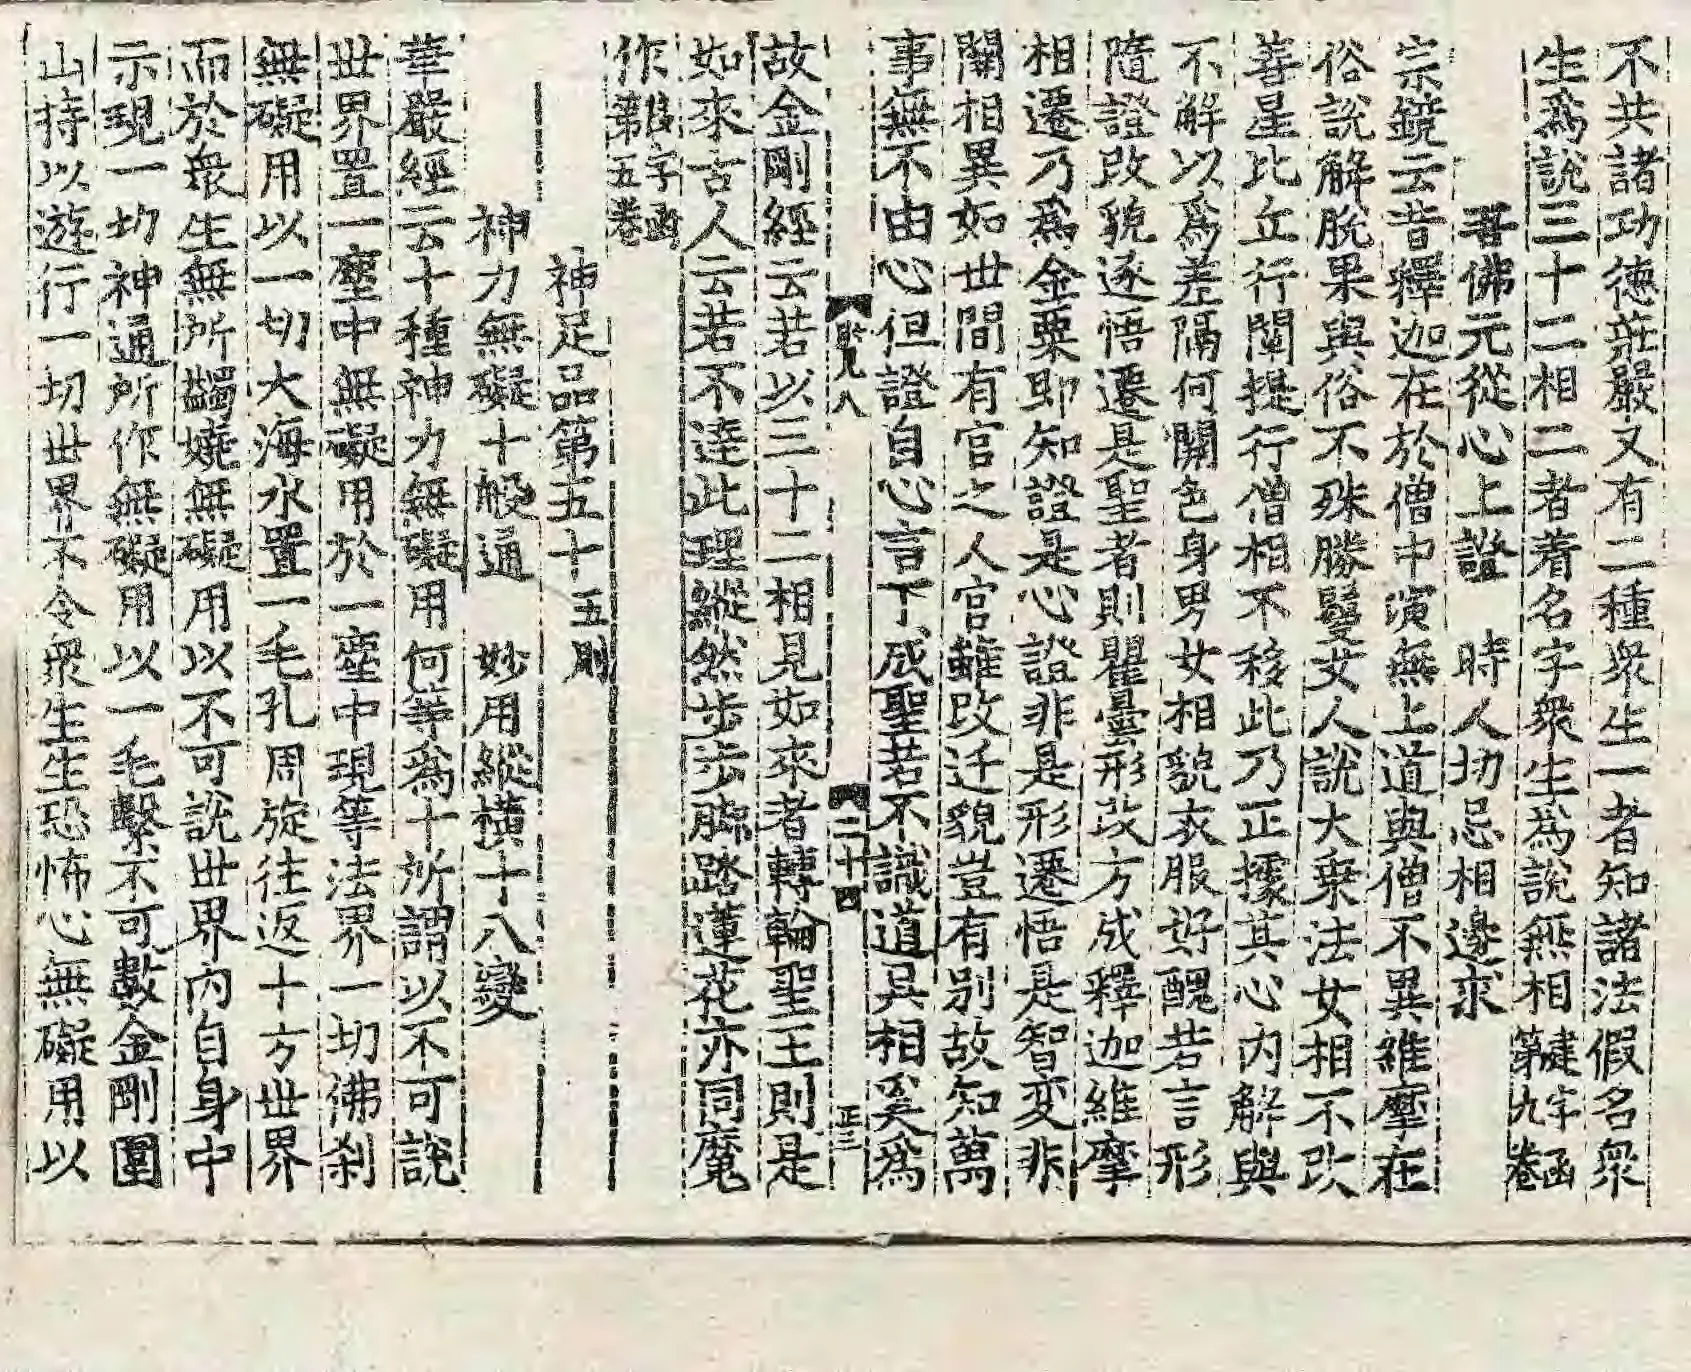 不共諸功德莊嚴又有二種衆生一者知諸法假名衆
生爲說三十二相二者着名字衆生爲說無相建字函第九卷
吾佛元從心上證　時人切忌相邊求
宗鏡云昔釋迦在於僧中演無上道與僧不異維摩在
俗說解脫果與俗不殊勝鬘女人說大乗法女相不改
善星比丘行闡提行僧相不移此乃正據其心內解與
不解以爲差隔何關色身男女相貌衣服好醜若言形
隨證改貌逐悟遷是聖者則瞿曇形改方成釋迦維摩
相遷乃爲金粟即知證是心證非是形遷悟是智变非
關相異如世間有官之人官雖改迁貌豈有別故知萬
事無不由心但證自心言下成聖若不識道具相奚爲
八　二十四　正三
故金剛經云若以三十二相見如來者轉輪聖王則是
如來古人云若不達此理縱然步步脚踏蓮花亦同魔
作字函第五卷
神足品第五十五則
神力無礙十般通　妙用縱橫十八變
華嚴經云十種神力無礙用何等爲十所謂以不可說
世界置一塵中無礙用於一塵中現等法界一切佛刹
無礙用以一切大海水置一毛孔周旋往返十方世界
而於衆生無所蠲嬈無礙用以不可說世界內自身中
示現一切神通所作無礙用以一毛繫不可數金剛圍
山持以遊行一切世界不令衆生生恐怖心無礙用以